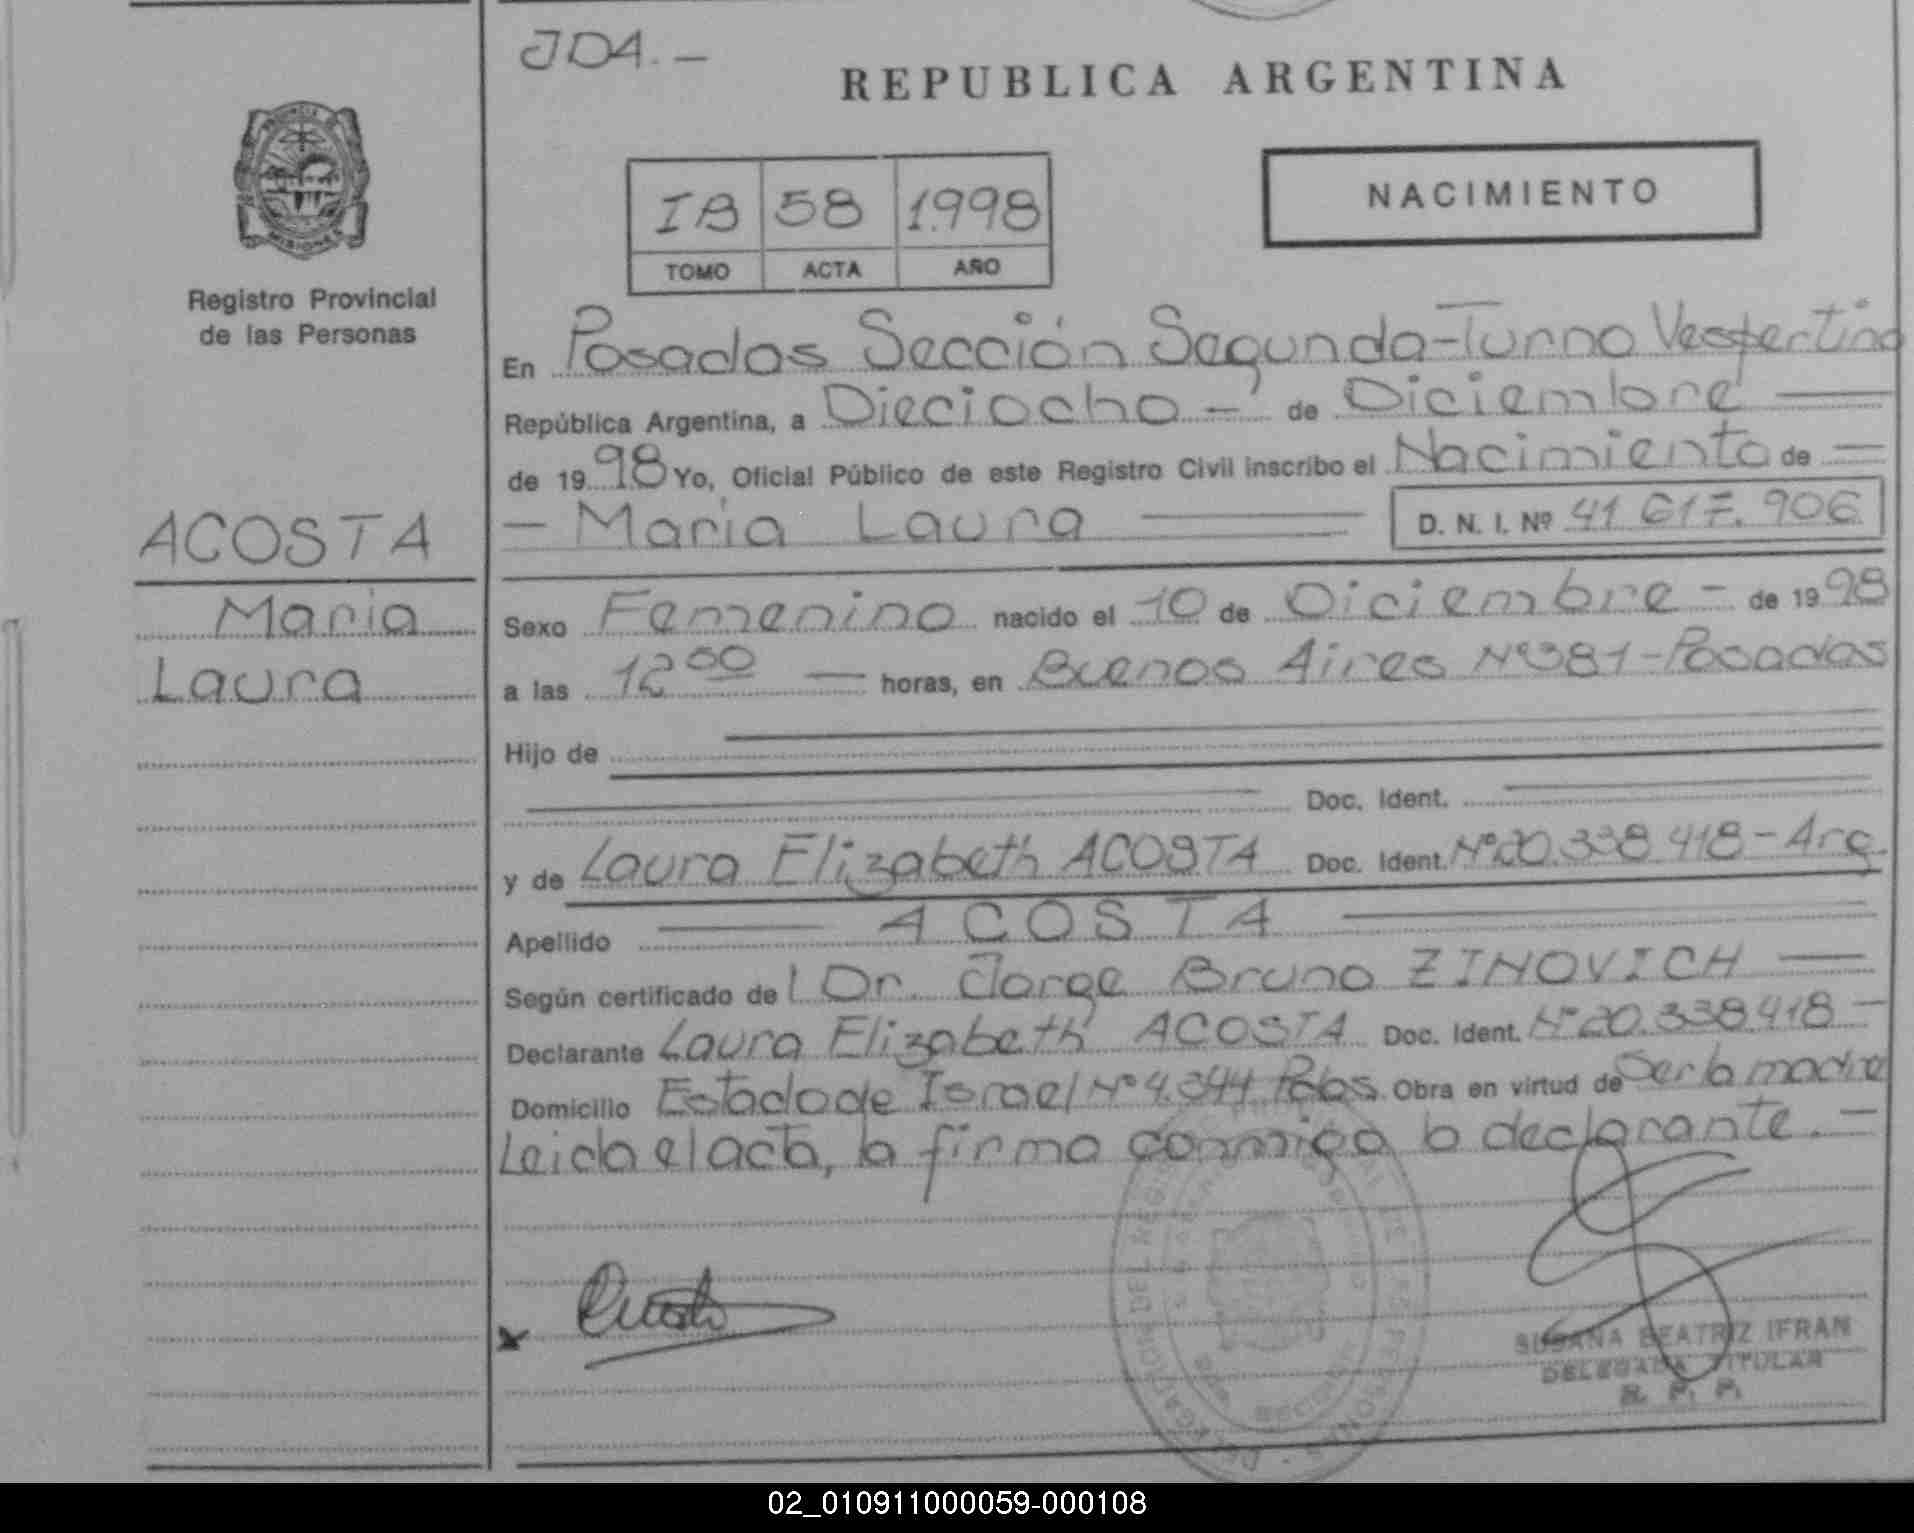 JDA.-
REPUBLICA ARGENTINA
PROVINCIA
MISIONES
Registro Provincial
de las Personas
NACIMIENTO
IB 58 1.998
TOMO ACTA AÑO
En Posadas Sección Segunda-Turno Vespertino
República Argentina, a Dieciocho - de Diciembre
de 1998 Yo, Oficial Público de este Registro Civil inscribo el Nacimiento de
- Maria Laura
D. N. I. Nº 41 617.906
ACOSTA
Maria
Laura
Sexo Femenino nacido el 10 de Diciembre - de 1998
a las 12 00 horas, en Buenos Aires Nº381-Posadas
Hijo de
Doc. Ident.
y de Laura Elizabeth ACOSTA Doc. Ident. Nº20.338 418-Arg.
Apellido ACOSTA
Según certificado de l Dr. Jorge Bruno ZINOVICH
Declarante Laura Elizabeth ACOSTA Doc. Ident. Nº20.338.418-
Domicilio Estado de Israel Nº 4.344 Pdas. Obra en virtud de Ser la madre
Leida el acta, la firma conmigo la declarante.-
SUSANA BEATRIZ IFRAN
DELEGADA TITULAR
R. P. P.
02_010911000059-000108